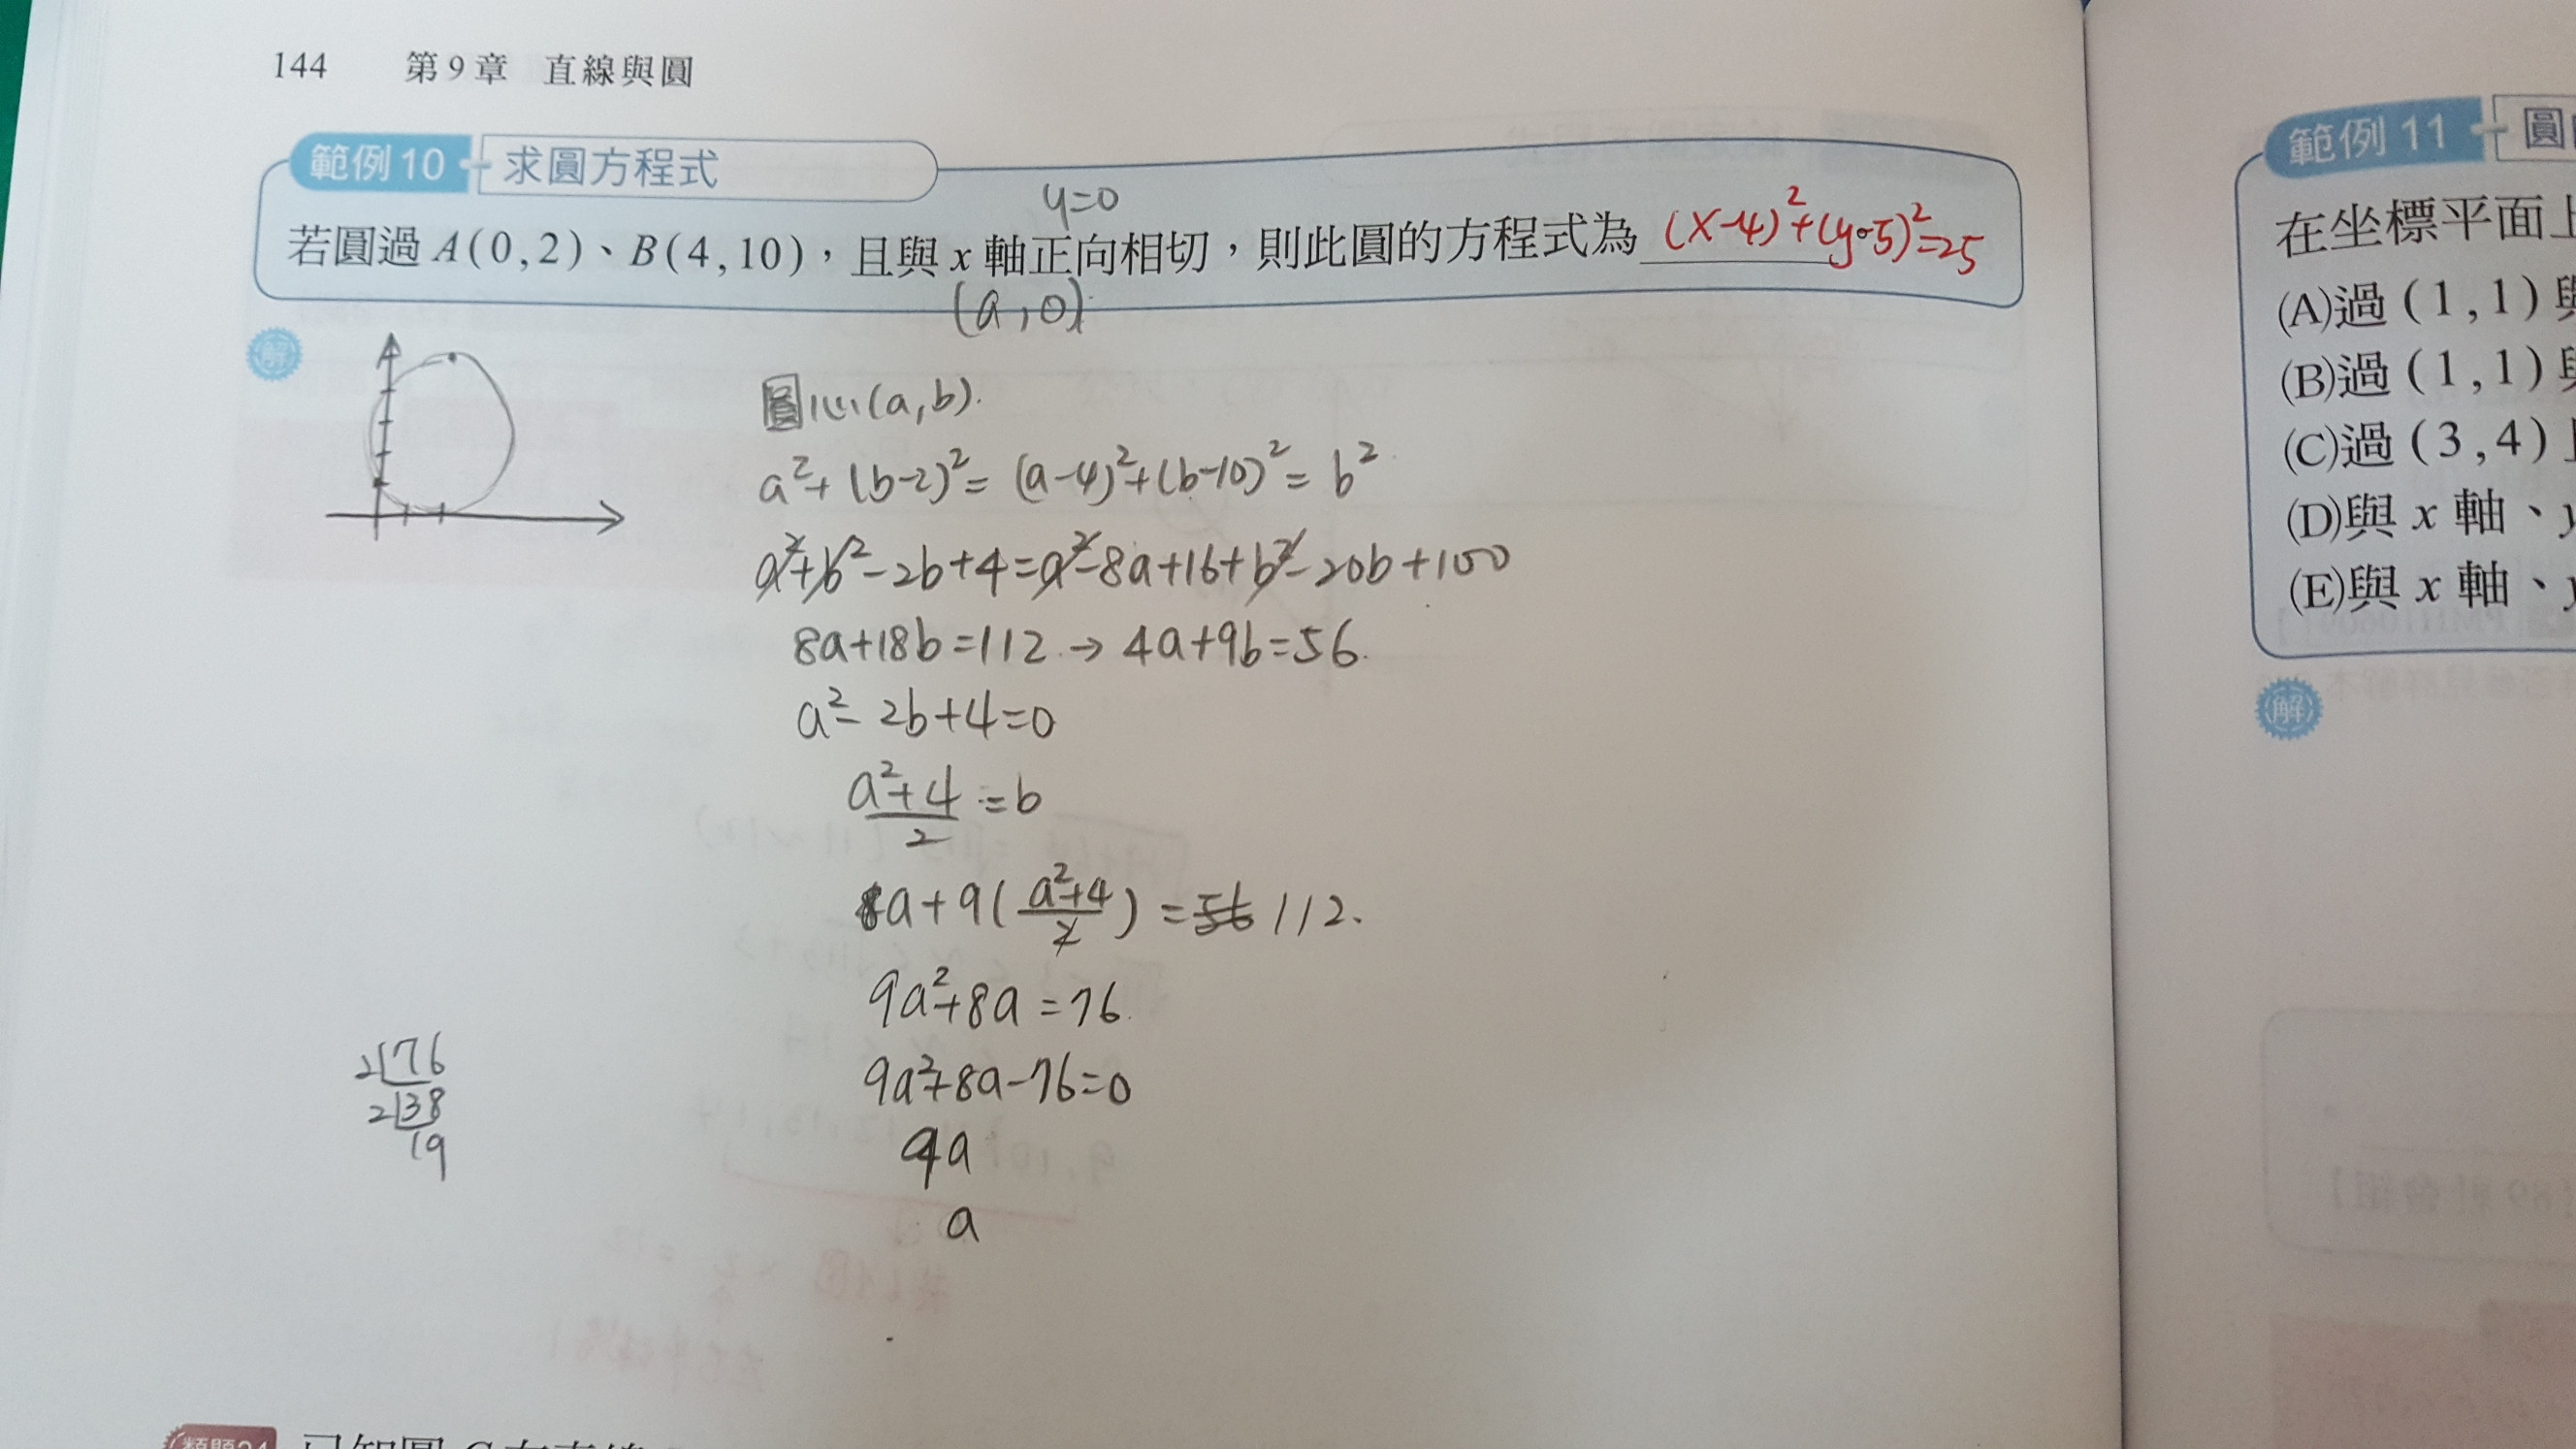 144 第9章 直線與圓
範例10 求圓方程式
y=0
若圓過 A(0,2)、B(4,10),且與 x 軸正向相切,則此圓的方程式為 (x-4)²+(y-5)²=25
(a,0)
解
圓心(a,b).
a²+(b-2)²=(a-4)²+(b-10)²=b²
a²+b²-2b+4=a²-8a+16+b²-20b+100
8a+18b=112.→4a+9b=56.
a²-2b+4=0
(a²+4)/2=b
8a+9((a²+4)/2)=56 112.
9a²+8a=76.
9a²+8a-76=0
9a
a
2|76
2|38
19
範例11
在坐標平面上
(A)過(1,1)與
(B)過(1,1)與
(C)過(3,4)
(D)與 x 軸、y
(E)與 x 軸、y
解